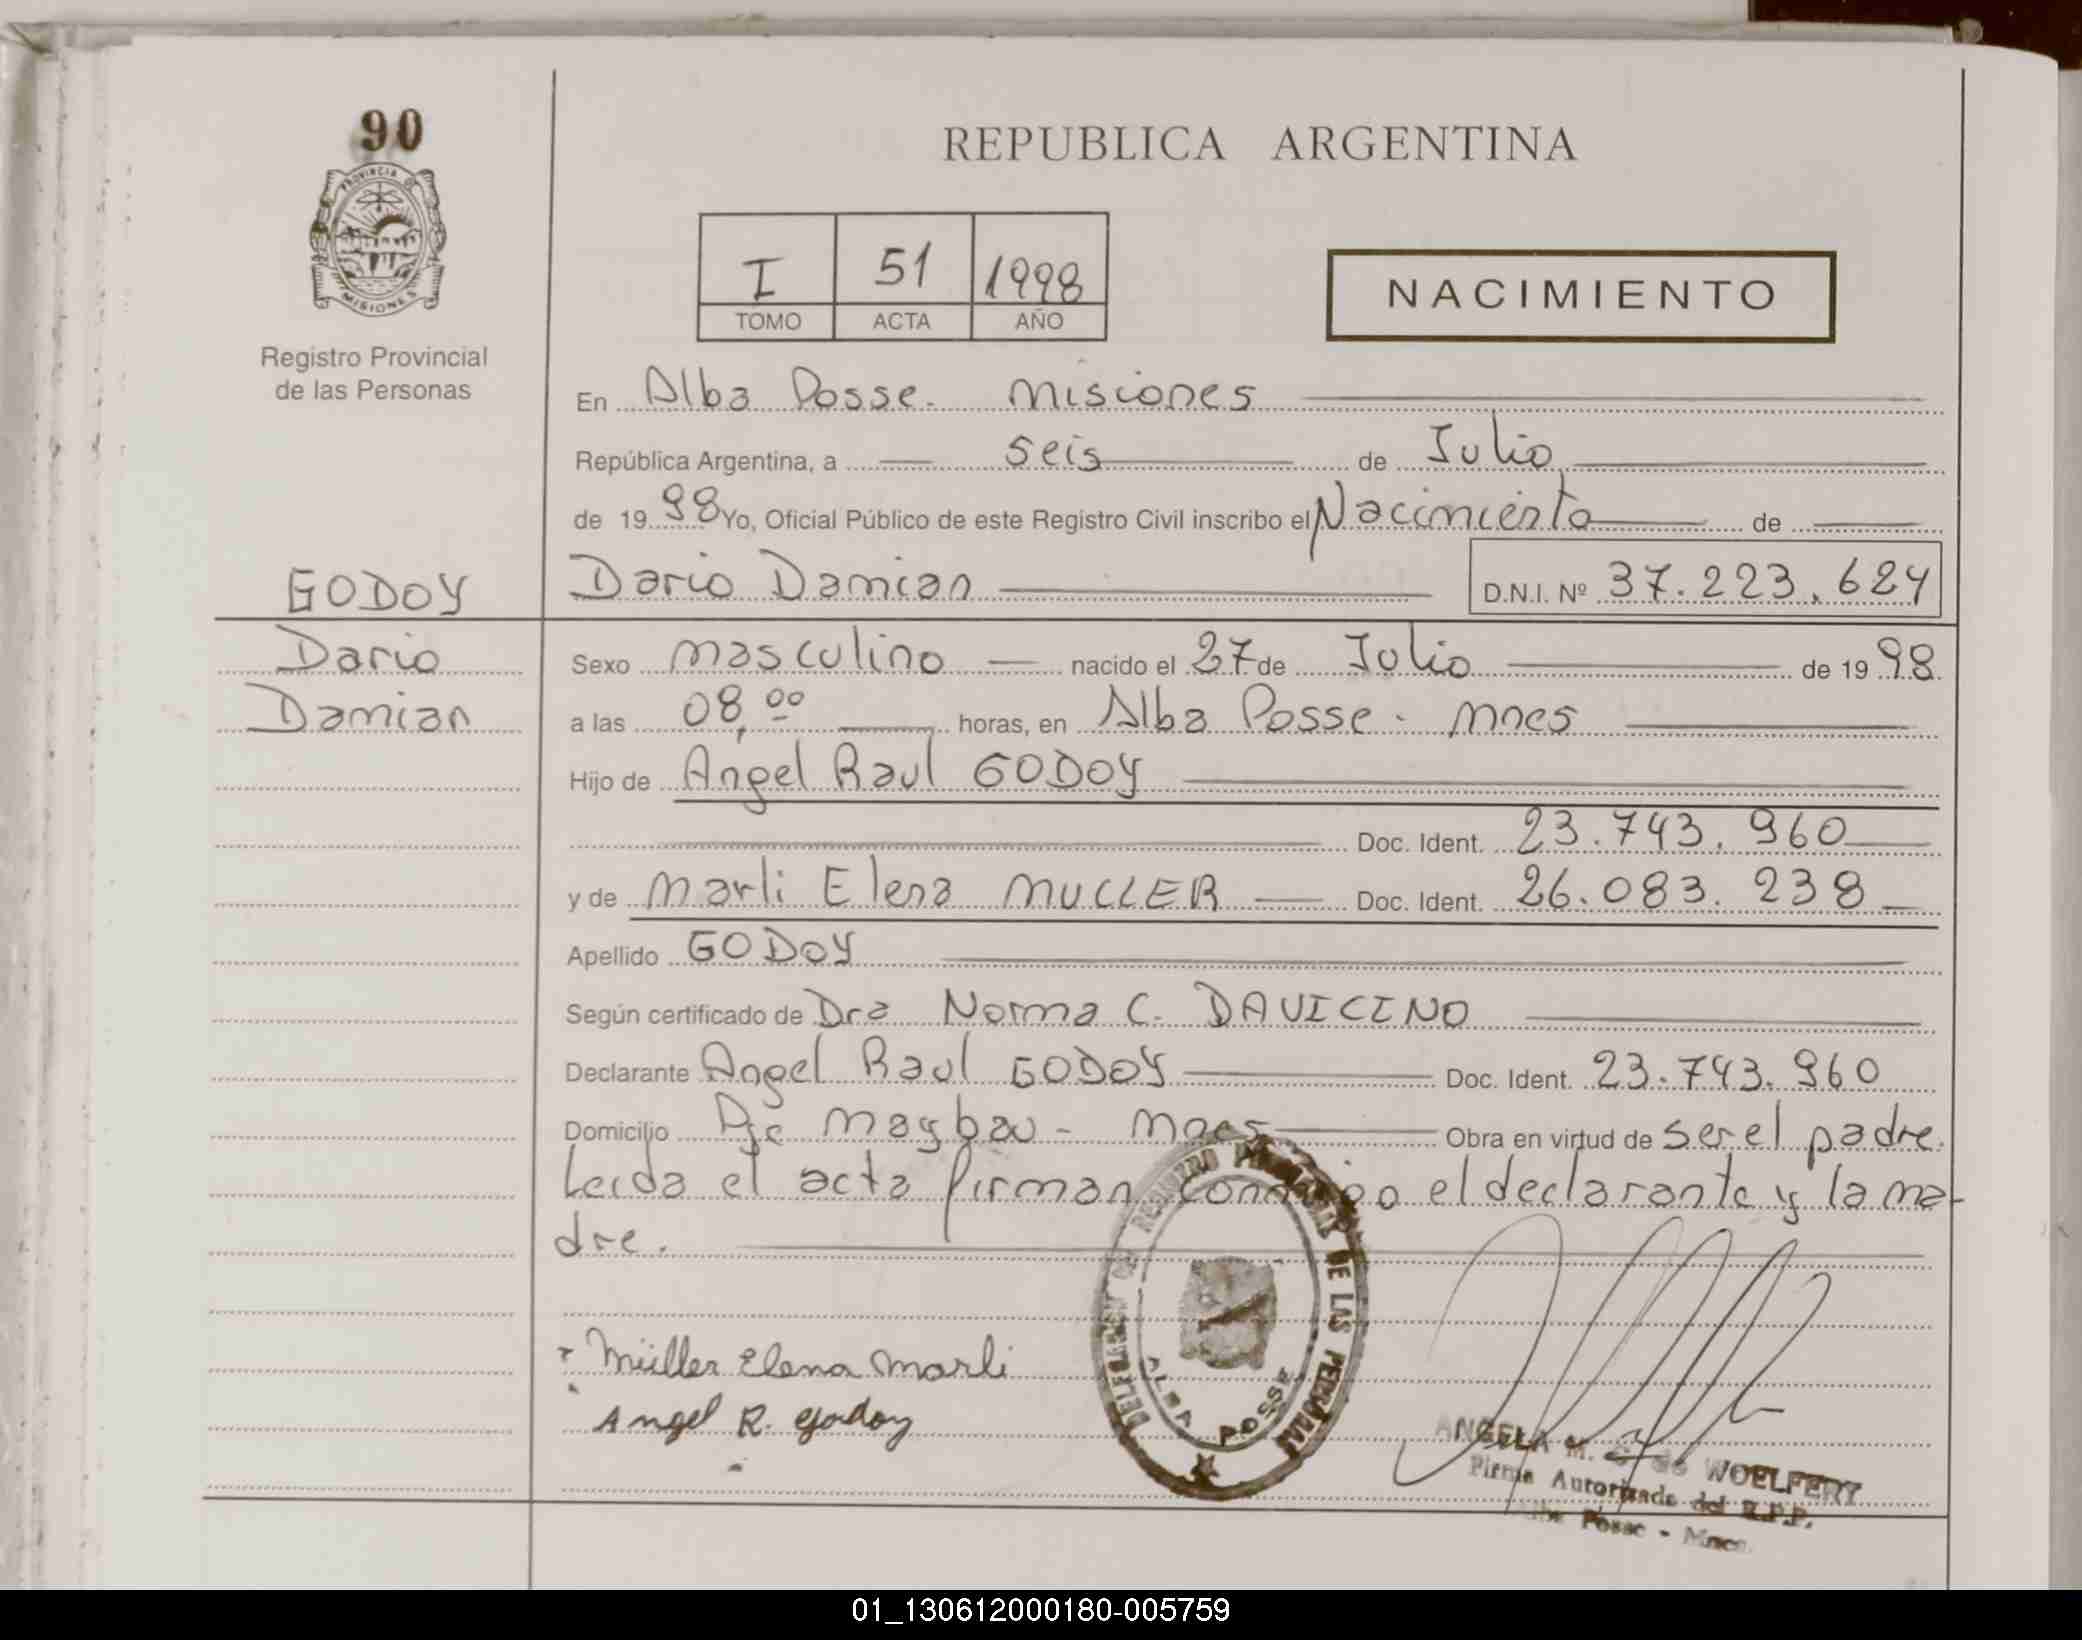 90
PROVINCIA DE
MISIONES
Registro Provincial
de las Personas
REPUBLICA ARGENTINA
I 51 1998
TOMO ACTA AÑO
NACIMIENTO
En Alba Posse. Misiones
República Argentina, a seis de Julio
de 19 98 Yo, Oficial Público de este Registro Civil inscribo el Nacimiento de
GODOY Dario Damian D.N.I. Nº 37.223.624
Dario Sexo masculino nacido el 27 de Julio de 19 98
Damian a las 08,00 horas, en Alba Posse - Mnes
Hijo de Angel Raul GODOY
Doc. Ident. 23.743.960
y de Marli Elena MULLER Doc. Ident. 26.083.238
Apellido GODOY
Según certificado de Dra Norma C. DAVICINO
Declarante Angel Raul GODOY Doc. Ident. 23.743.960
Domicilio Pje Maybau - Mnes Obra en virtud de ser el padre.
Leida el acta firman conmigo el declarante y la ma-
dre.
Müller Elena Marli
Angel R. Godoy
DELEGACION DEL REGISTRO PROVINCIAL DE LAS PERSONAS
ALBA POSSE
ANGELA M. de WOELFERT
Firma Autorizada del R.P.P.
Alba Posse - Mnes.
01_130612000180-005759